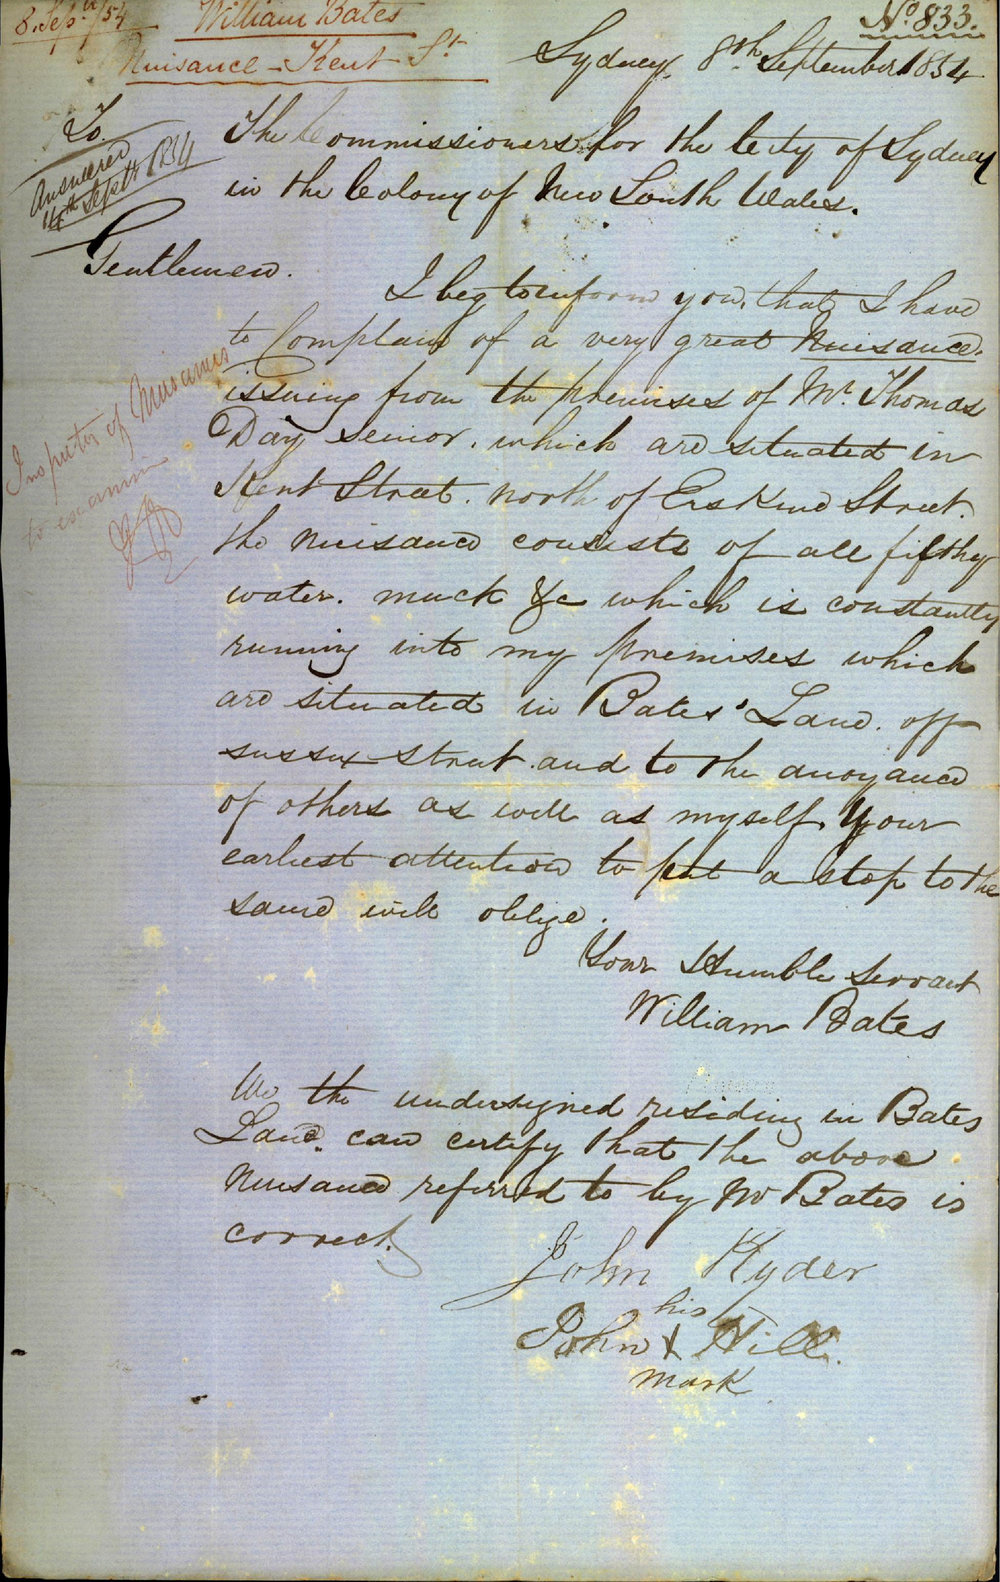 8. Sepr/54 William Bates No. 833.
Nuisance - Kent St
Sydney, 8th September 1854
To
The Commissioners for the City of Sydney
in the Colony of New South Wales.
Answered
14th Septr 1854
Gentlemen.
I beg to inform you, that I have
to Complain of a very great Nuisance.
issuing from the premises of Mr. Thomas
Day senior. which are situated in
Kent Street. north of Erskine Street.
the nuisance consists of all filthy
water. muck &c which is constantly
running into my premises which
are situated in Bates' Land. off
sussex street. and to the anoyance
of others as well as myself. Your
earliest attention to put a stop to the
same will oblige.
Inspector of Nuisances
to examine
Your Humble Servant
William Bates
We the undersigned residing in Bates
Land. can certify that the above
Nuisance referred to by Mr Bates is
correct.
John Ryder
his
John X Hill.
mark